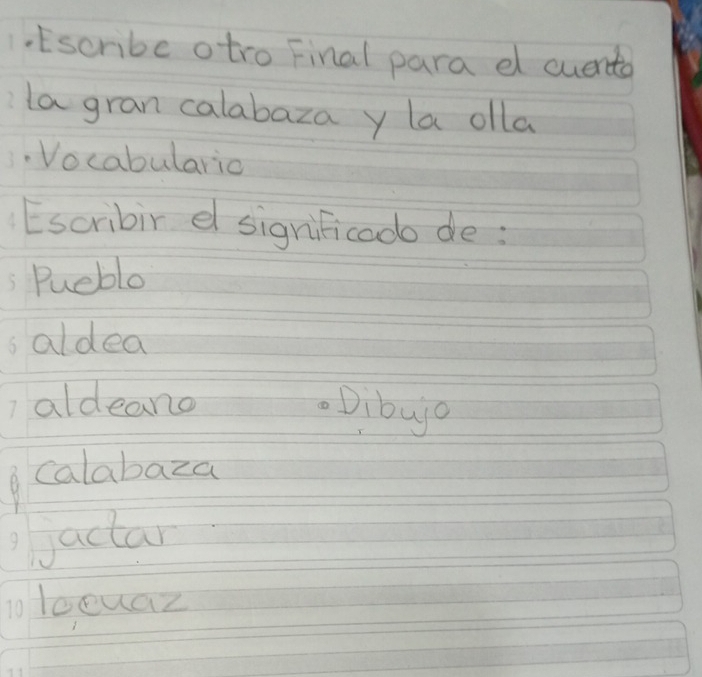 1 • Escribe otro Final para el cuento
2 la gran calabaza y la olla
3 • Vocabulario
4 Escribir el significado de :
5 Pueblo
6 aldea
7 aldeano • Dibujo
8 calabaza
9 jactar
10 locuaz
11